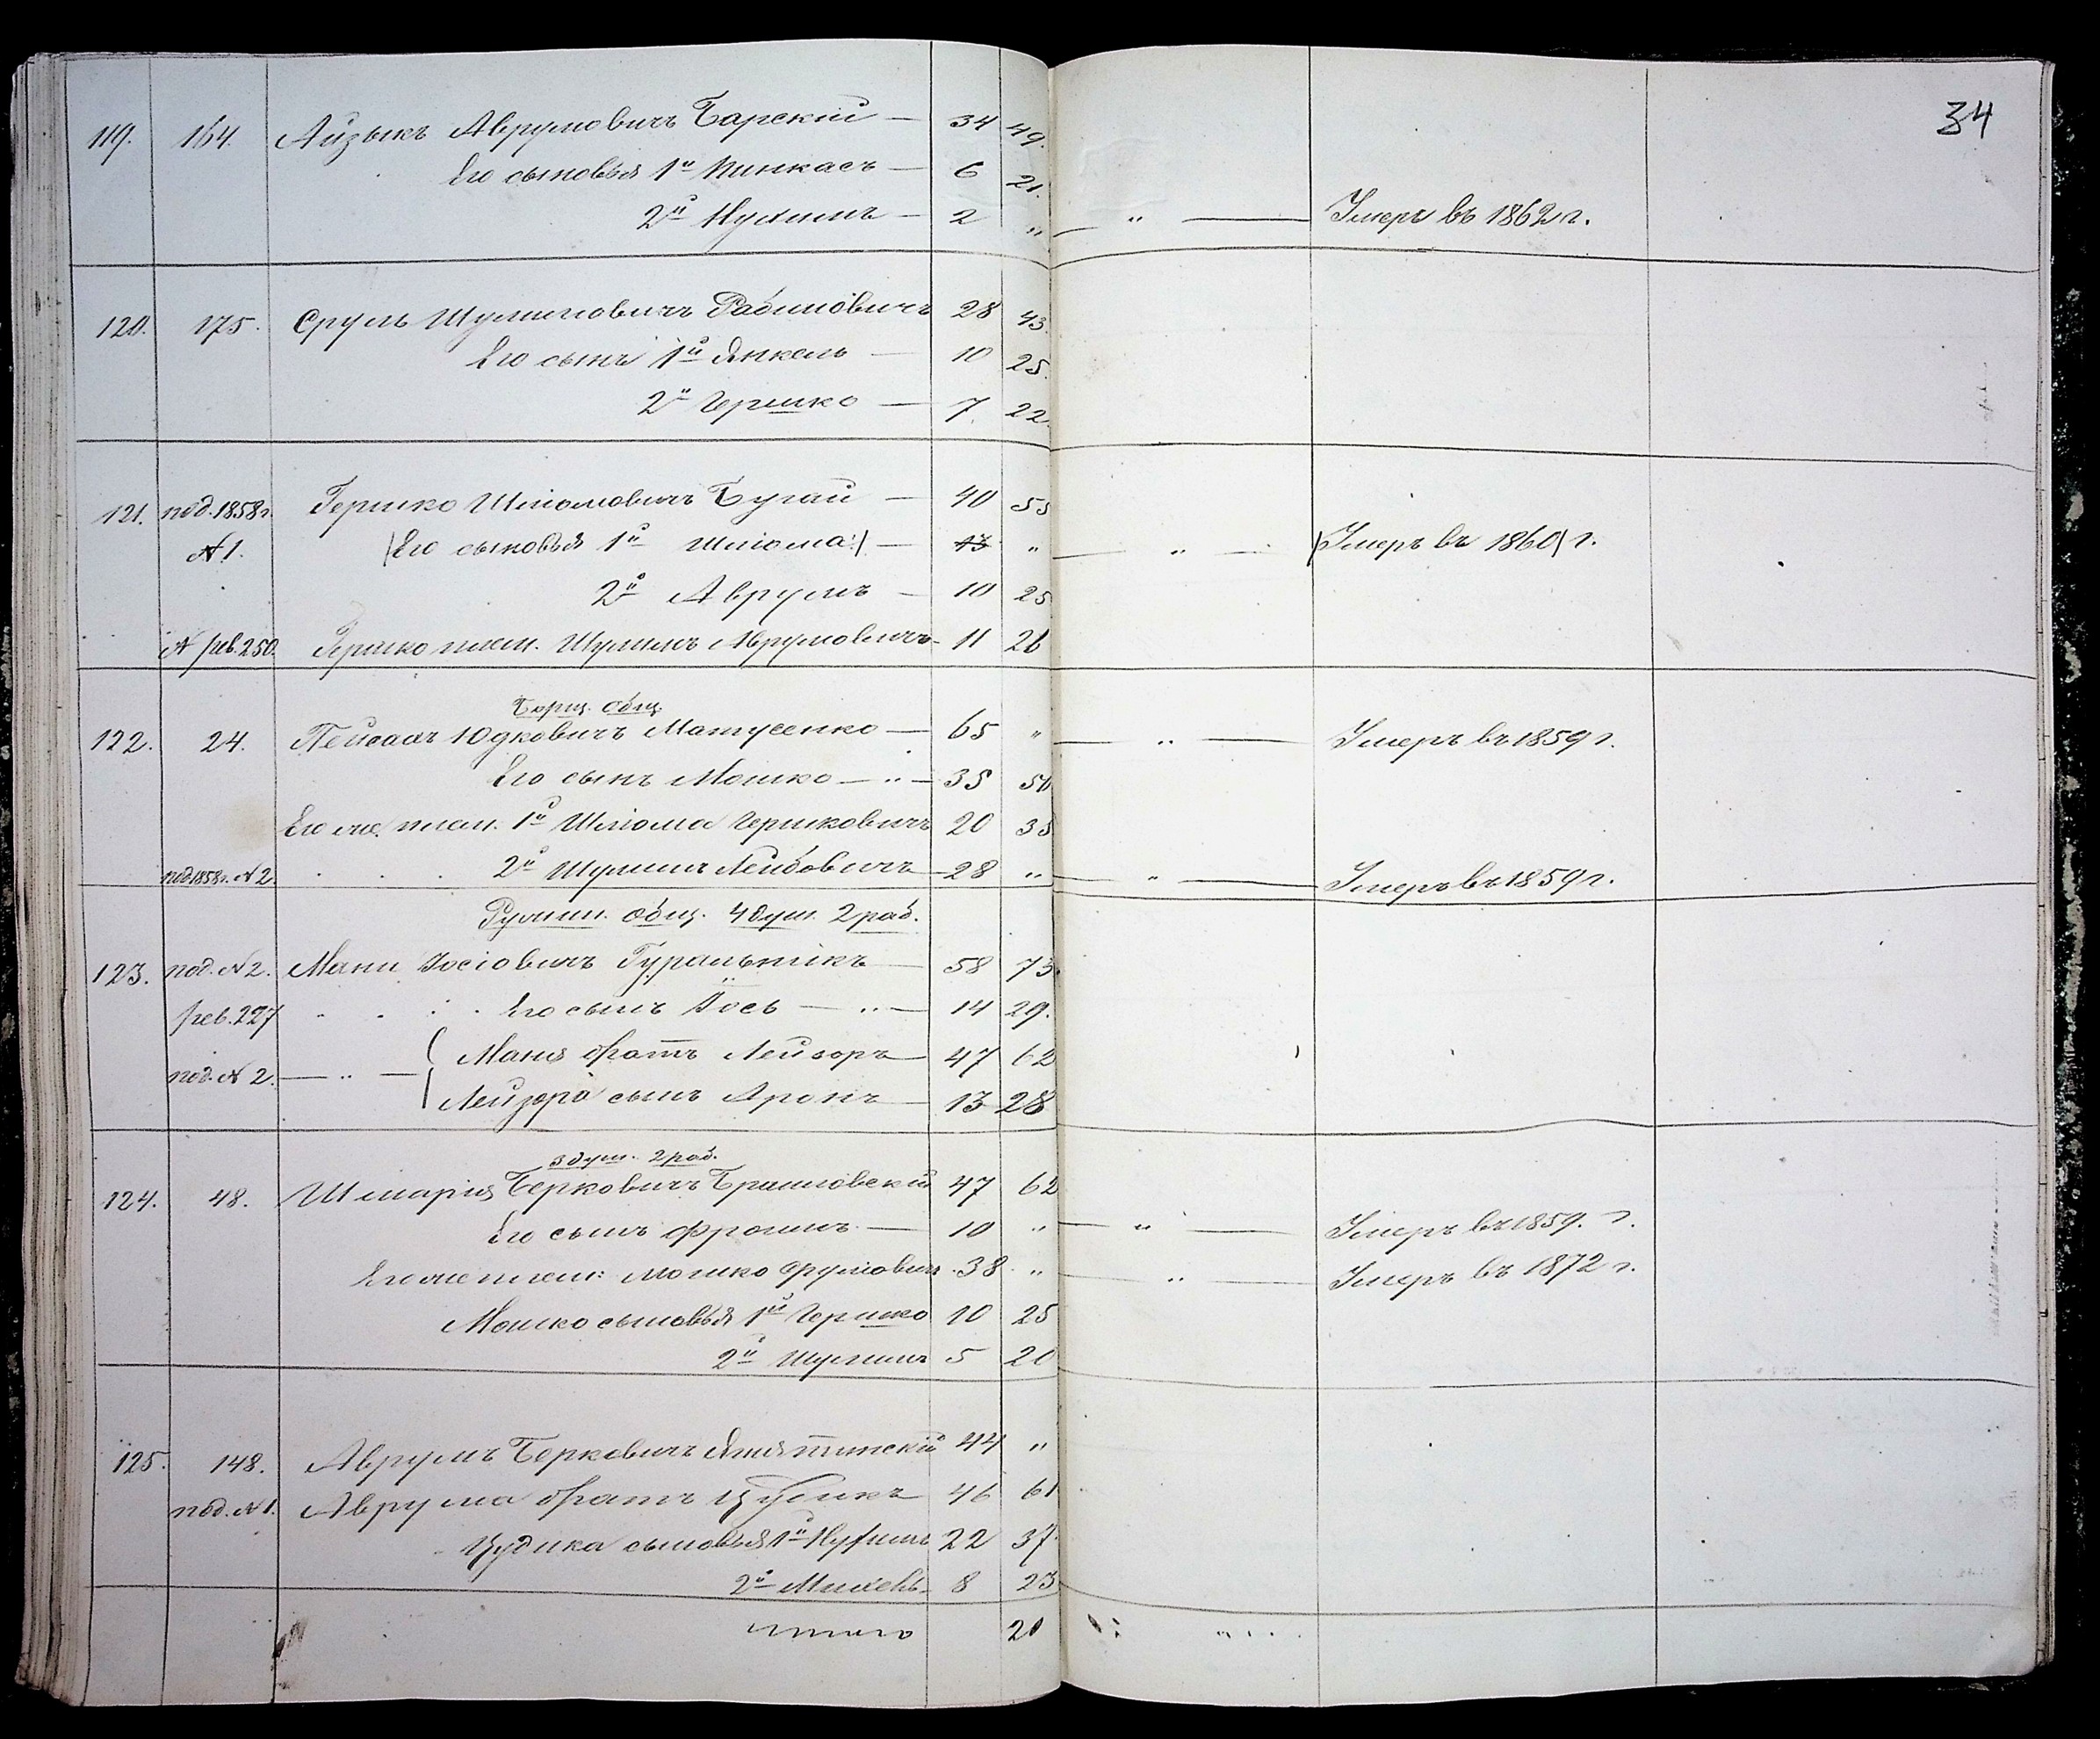 34
119. 164. Айзыкъ Аврумовичъ Барскій — 34 49.
Его сыновья 1й Пинкасъ — 6 21.
2й Нухимъ — 2 " — " — Умеръ въ 1862 г.
120. 175. Сруль Шулимовичъ Рабиновичъ 28 43.
Его сынъ 1й Янкель — 10 25.
2й Гершко — 7. 22.
121. под. 1858 г. Гершко Шліомовичъ Бугай — 40 55
№ 1. |Его сыновья 1й Шліома:| — 13 " — " — |Умеръ въ 1860| г.
2й Аврумъ — 10 25
№ рев. 250. Гершко плем. Шулимъ Аврумовичъ - 11 26
Борщ. общ.
122. 24. Пейсахъ Юдковичъ Матусенко — 65 " — " — Умеръ въ 1859 г.
Его сынъ Мошко — " — 35 50
Его же плем. 1й Шліома Гершковичъ 20 35
под 1858 г. № 2. 2й Шулимъ Лейбовичъ — 28 " — " — Умеръ въ 1859 г.
общ. 4 душ. 2 раб.
123. под. № 2. Мани Іосіовичъ Гуральникъ — 58 73.
рев. 227 Его сынъ Іось — " — 14 29.
Маня братъ Лейзоръ — 47 62
под. № 2. — " — Лейзора сынъ Аронъ — 13 28
3 душ. 2 раб.
124. 48. Шмарія Берковичъ Браиловскій 47 62
Его сынъ Фроимъ — 10 " — " — Умеръ въ 1859. г.
Его же плем: Мошко Срулiовичъ 38 " — " — Умеръ въ 1872 г.
Мошко сыновья 1й Гершко 10 25
2й Шулимъ 5 20
125. 148. Аврумъ Берковичъ 44 "
под. № 1. Аврума братъ Цудикъ 46 61
Цудика сыновья 1й Нухимъ 22 37.
2й Михель - 8 23
итого 20